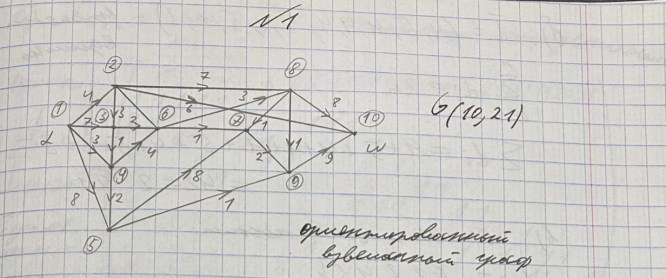 №1
2 7 8
4 3 3 6 8
1 3 2 6 1 7 1 10
7 G(10,21)
α 3 1 4 2 1 9 ω
4 9
8 2 8 1
5
ориентированный
взвешанный граф